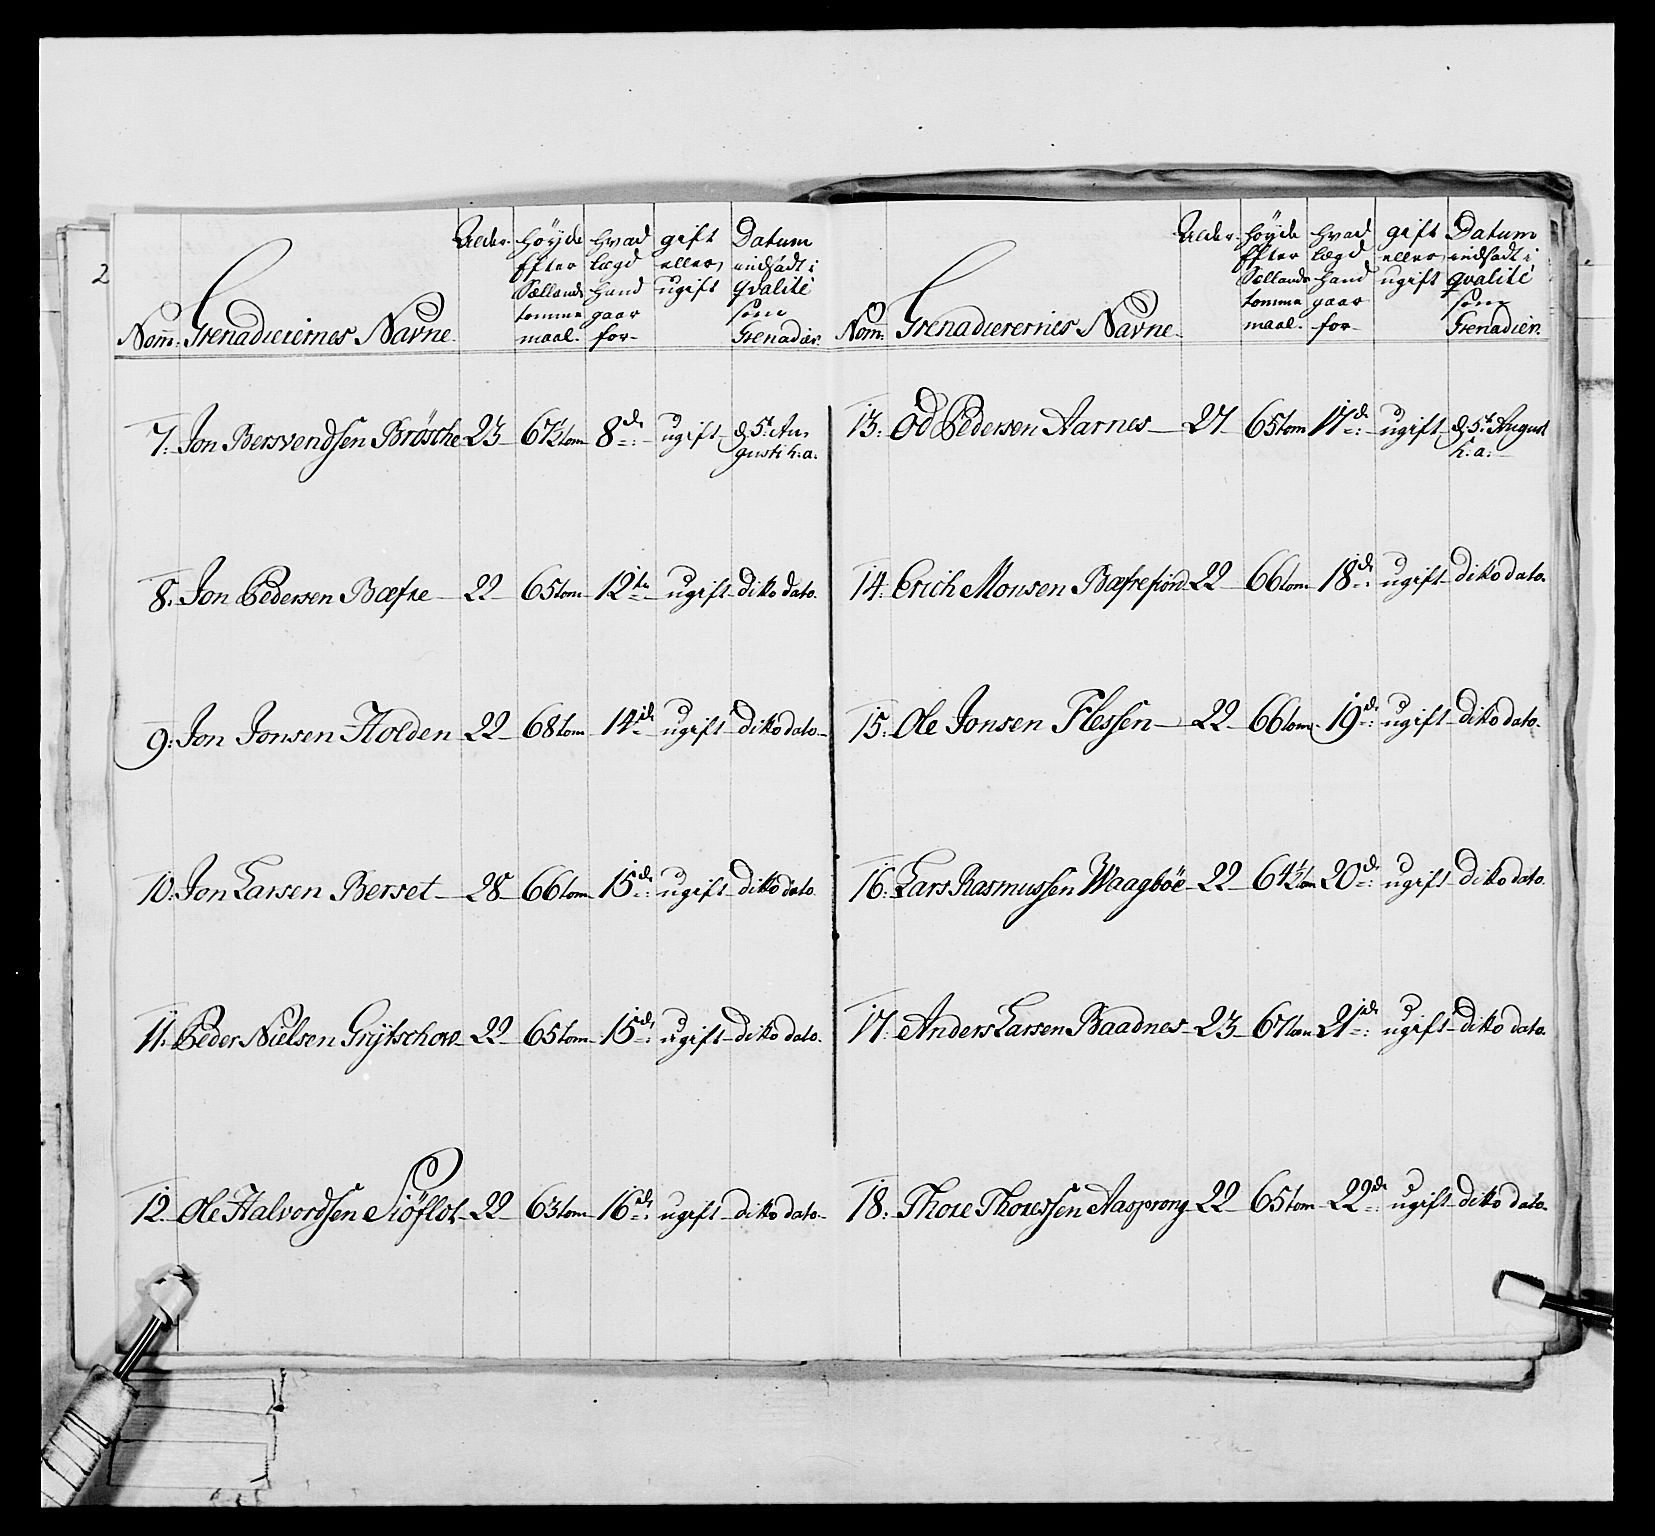 2
Nom: Grenadierernes Navne. Alder. høyde Efter Sællands tomme maal. hvad lægd hand gaar for gift eller ugift Datum indsadt i qvalité som Grenadier.
7. Jon Bersvendsen Brøsche 23 67½ tom 8de ugift d: 5t Augusti h: a:
8. Jon Pedersen Bæfre 22 65 tom 12te ugift dito dato.
9. Jon Jonsen Holden 22 68 tom 14de ugift dito dato
10. Jon Larsen Berset 28 66 tom 15de ugift dito dato
11. Peder Nielsen Grytschow 22 65 tom 15de ugift dito dato.
12. Ole Halvordsen Siøflot 22 63 tom 16de ugift dito dato
Nom: Grenadierernes Navne. Alder. høyde Efter Sællands tomme maal. hvad lægd hand gaar for gift eller ugift Datum indsadt i qvalité som Grenadier.
13. Od Pedersen Aarnes 27 65 tom 17de ugift d: 5t August h: a:
14. Erich Monsen Bæfrefiord 22 66 tom 18de ugift dito dato.
15. Ole Jonsen Flessen 22 66 tom 19de ugift dito dato.
16. Lars Rasmussen Waagbøe 22 64½ tom 20de ugift dito dato.
17. Anders Larsen Baadnes 23 67 tom 21de ugift dito dato.
18. Thore Thoressen Aasprong 22 65 tom 22de ugift dito dato.